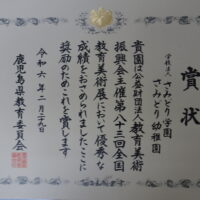 賞状
学校法人 さみどり学園
さみどり幼稚園
貴園は公益財団法人教育美術
振興会主催第八十三回全国
教育美術展において優秀な
成績をおさめられましたここに
奨励のためこれを賞します
令和六年二月二十九日
鹿児島県教育委員会